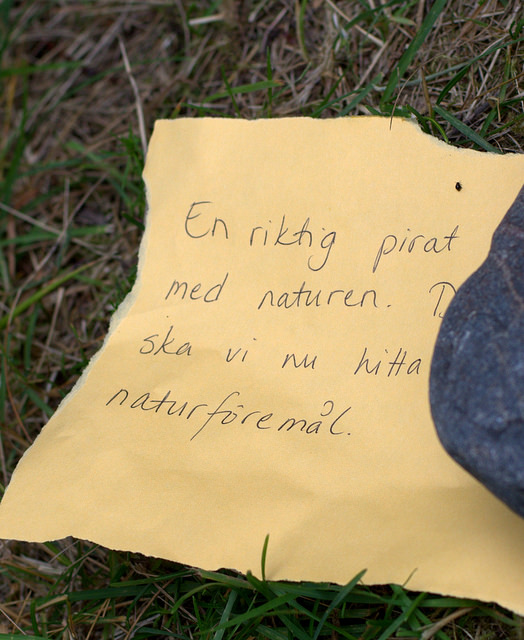 En riktig pirat
med naturen.
ska vi nu hitta
naturföremål.